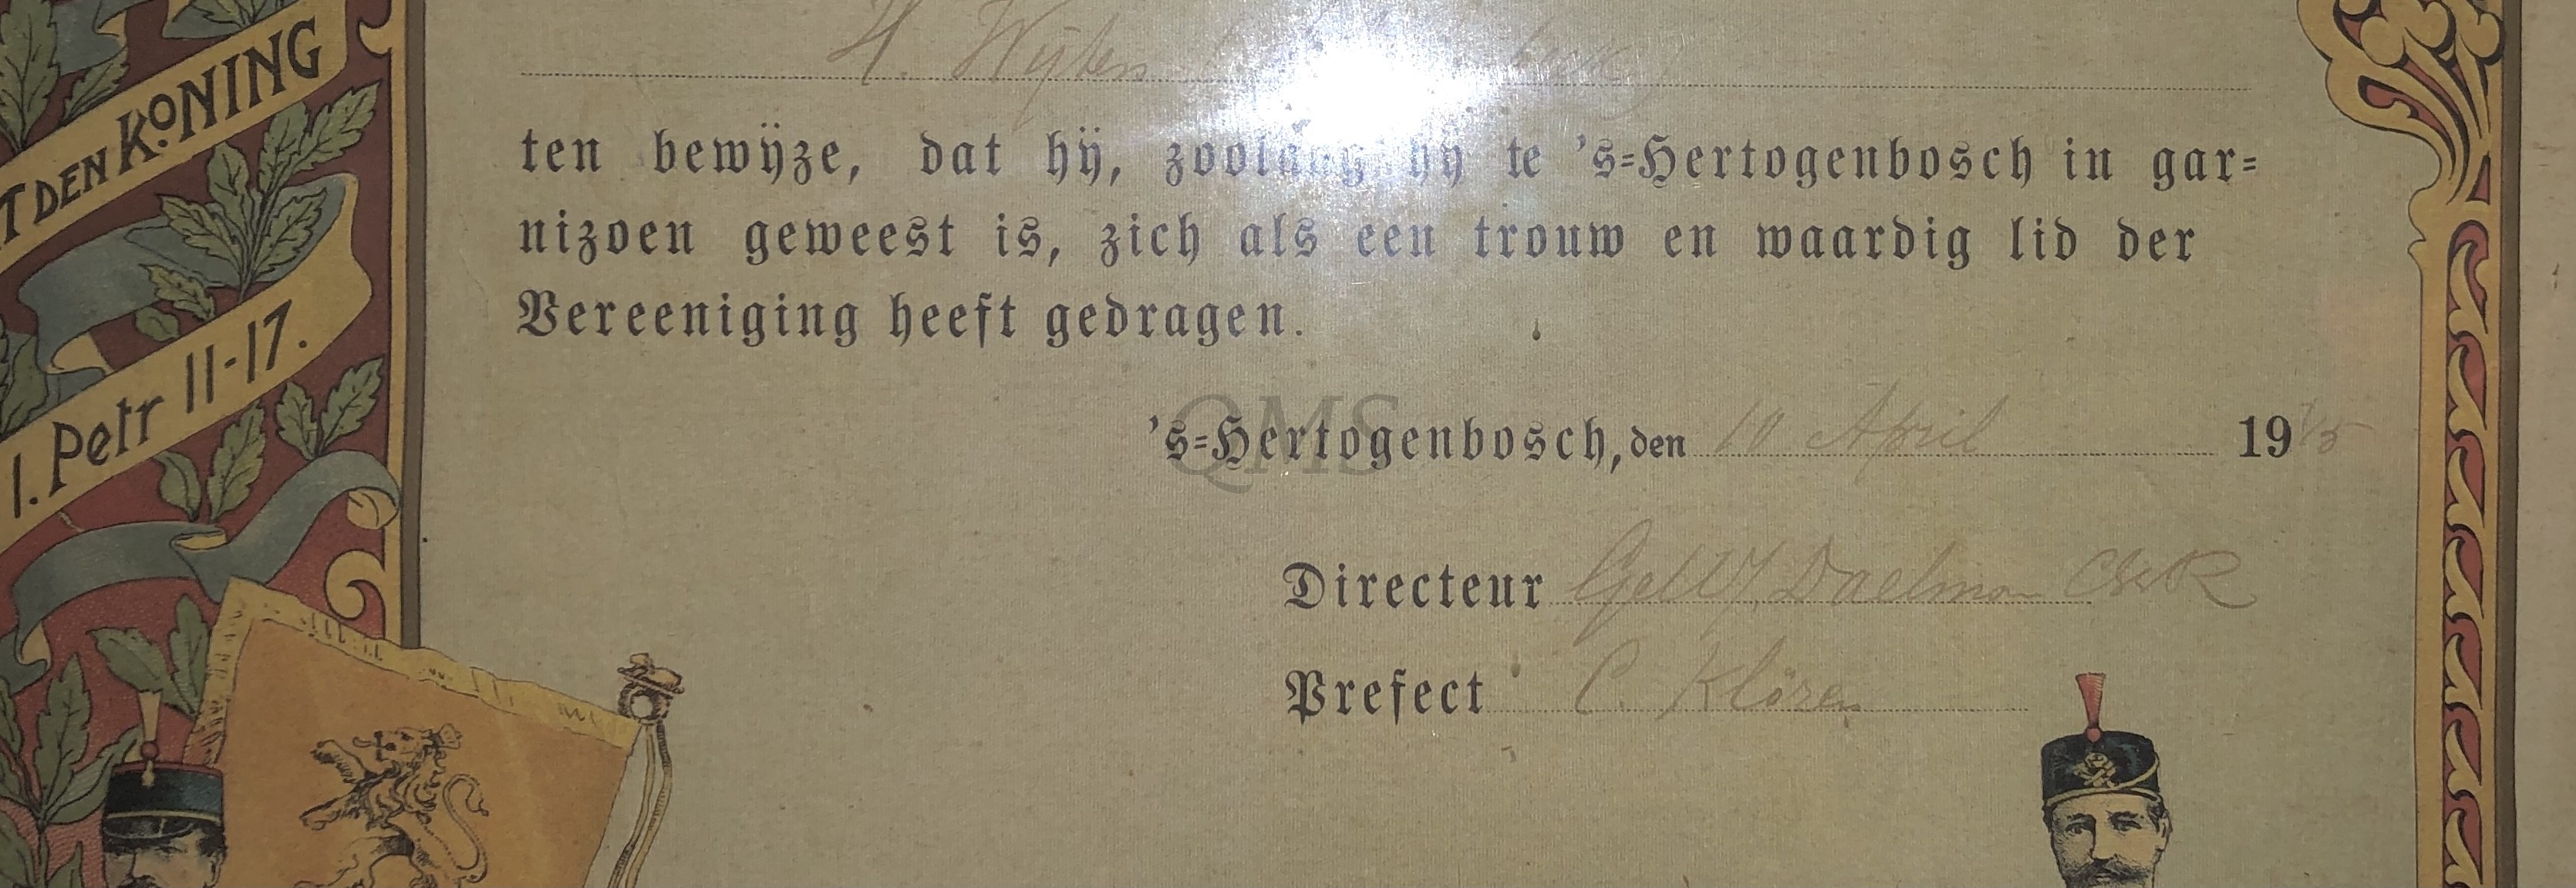 H. Wijten
T DEN KONING
ten bewijze, dat hij, zoolang hij te 's=Hertogenbosch in gar=
nizoen geweest is, zich als een trouw en waardig lid der
Vereeniging heeft gedragen.
I. Petr II-17.
's=Hertogenbosch, den 10 April 19
QMS
Directeur Daelman
Prefect C. Klören